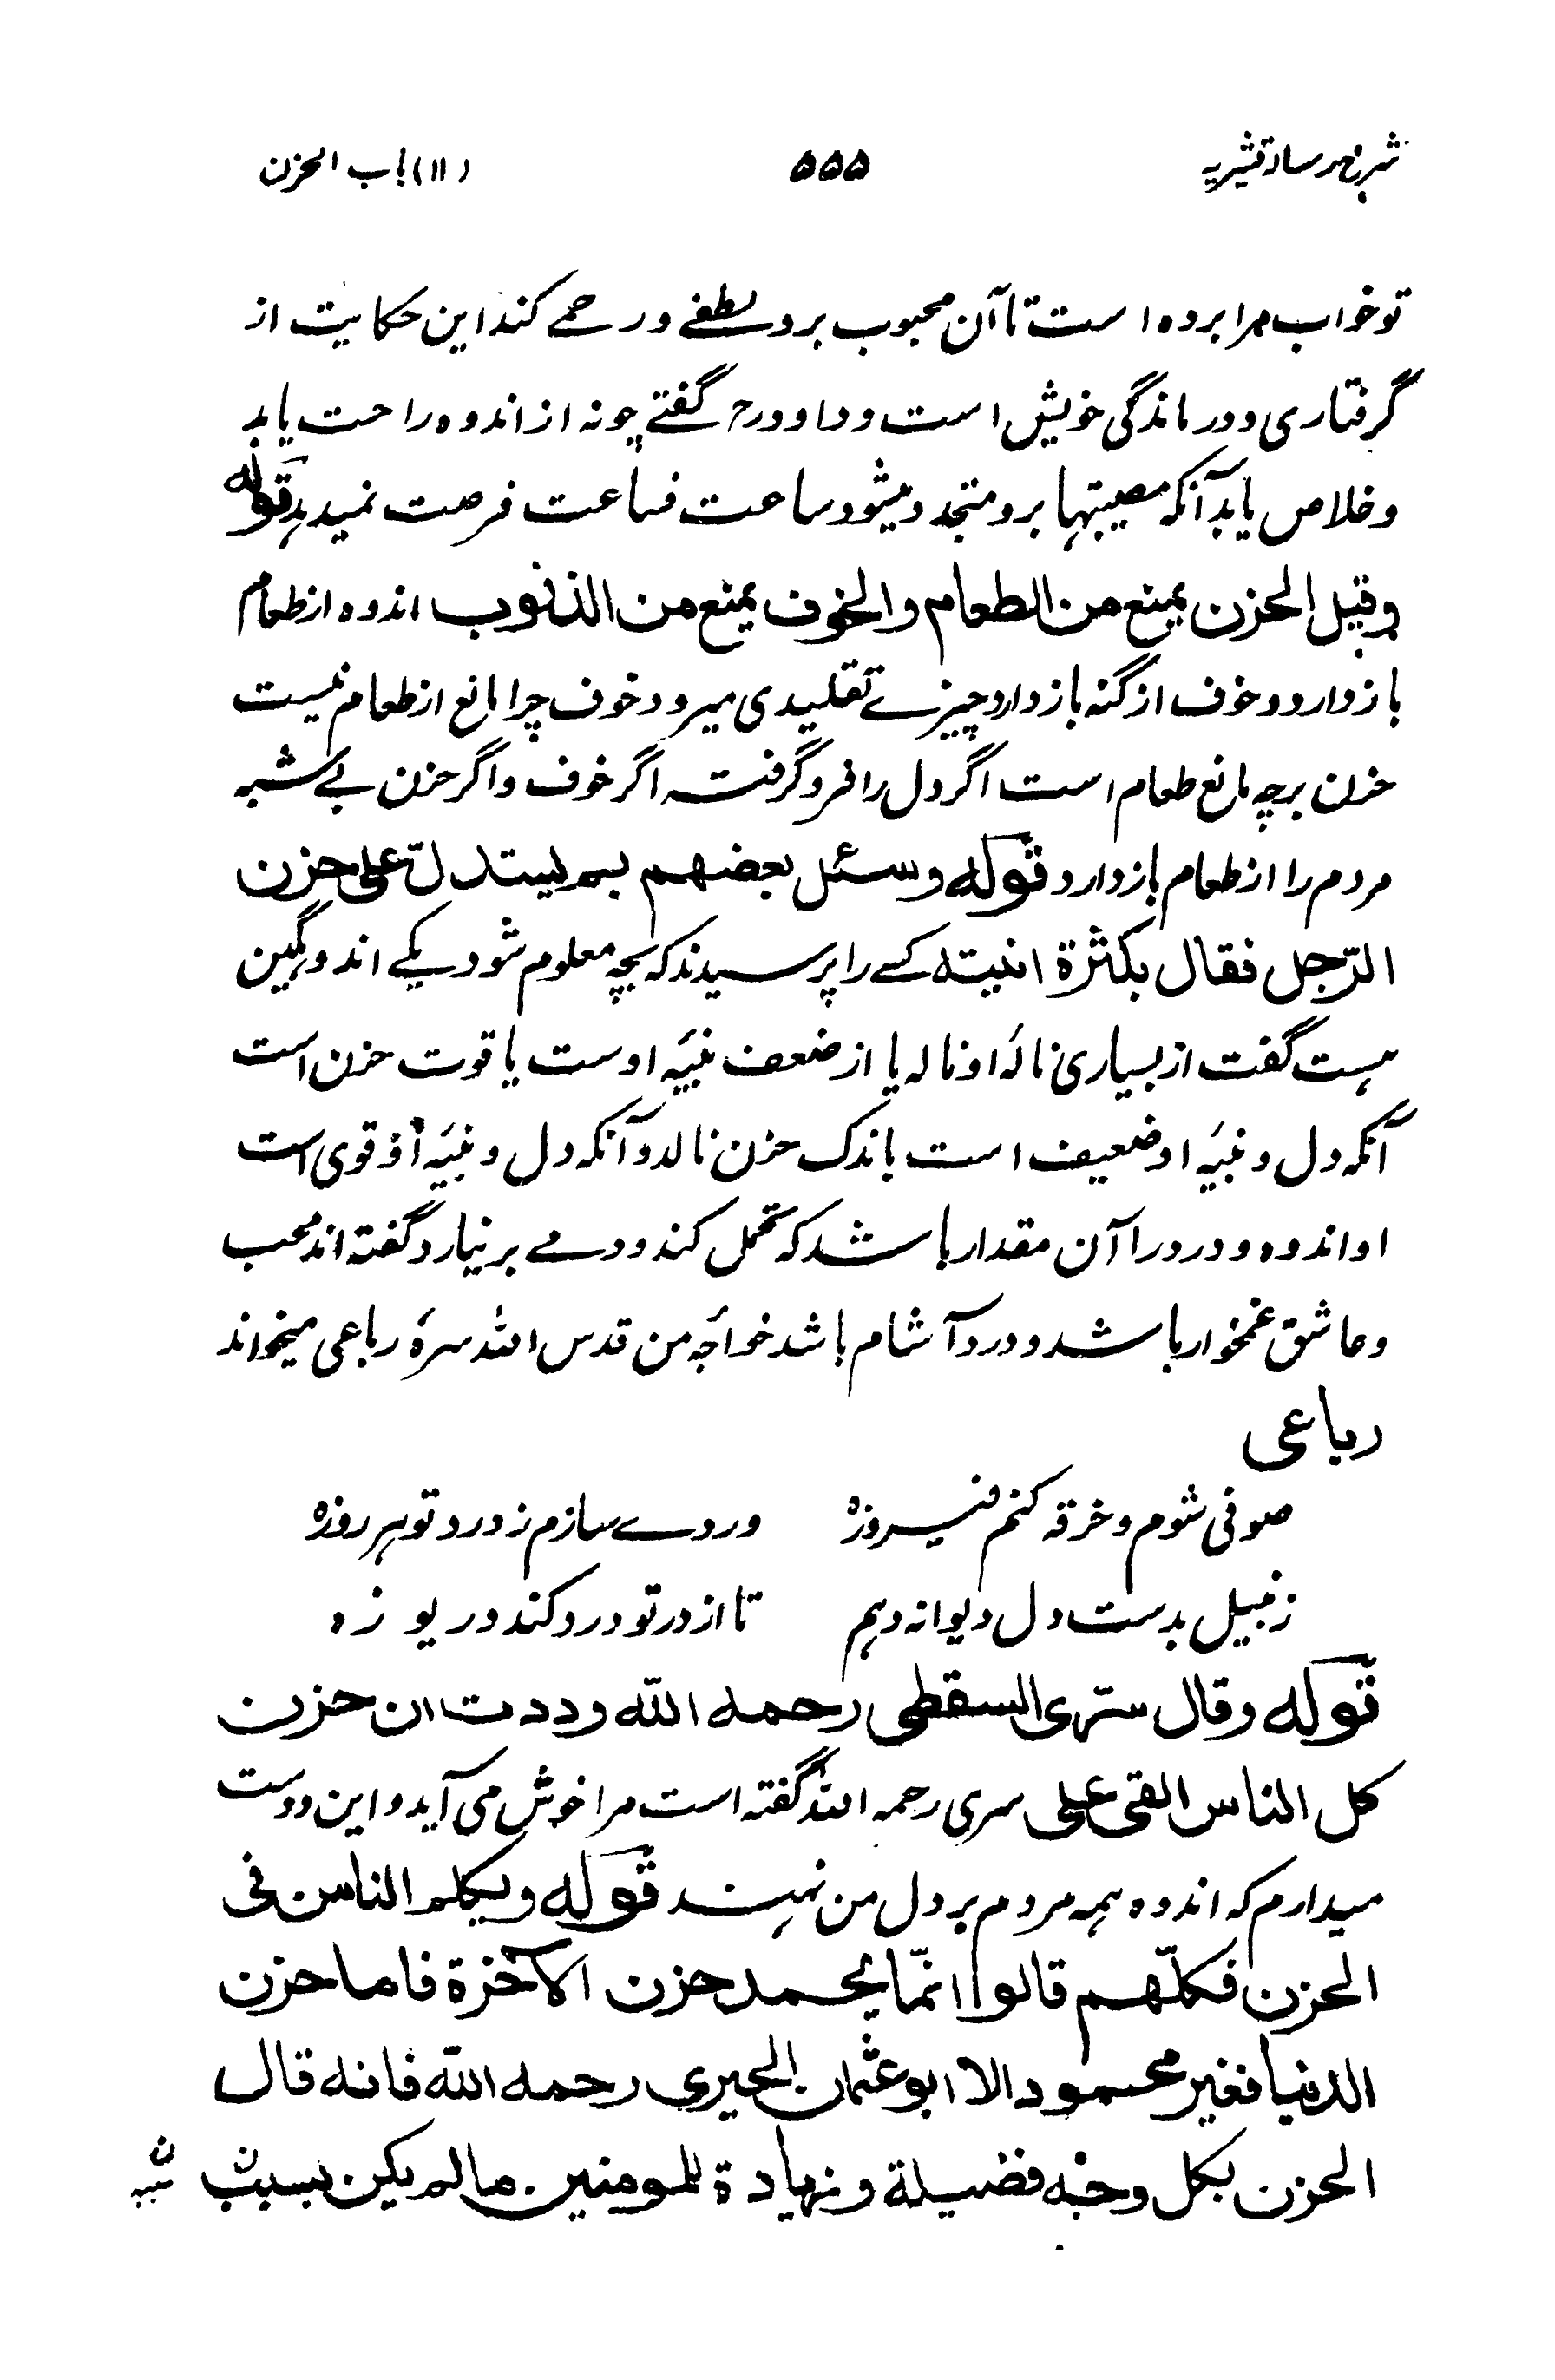 شرح رساله قشیریه ۵۵۵ (۱۱) باب الحزن
تو خواب مرا برده است تا آن محبوب برو لطفے و رحمے کند این حکایت از
گرفتاری و درماندگی خویش است و داود رح گفتے چونه از اندوه راحت یابد
و خلاص یابد آنکه مصیبتها برو متجدد میشود ساعت فساعت فرصت نمیدهد قوله
وقیل الحزن یمنع من الطعام والخوف یمنع من الذنوب اندوه از طعام
باز دارد و خوف از گنه باز دارد چیزے تقلیدی میرود خوف چرا مانع از طعام نیست
حزن برچه مانع طعام است اگر دل را فرو گرفت اگر خوف و اگر حزن بے شبه
مردم را از طعام باز دارد قوله وسئل بعضهم بم یستدلّ علی حزن
الرّجل فقال بکثرة انینه کسے را پرسیدند که بچه معلوم شود یکے اندوهگین
هست گفت از بسیاری نالهٔ او ناله یا از ضعف بنیهٔ اوست یا قوت حزن است
آنکه دل و بنیهٔ او ضعیف است باندک حزن نالد و آنکه دل و بنیهٔ او قوی است
او اندوه و درد را آن مقدار باشد که تحمل کند و دمے بر نیارد گفته اند محب
و عاشق غمخوار باشد و درد آشام باشد خواجهٔ من قدس الله سرهٔ رباعی میخواند
رباعی
صوفی شوم و خرقه کنم فیروزه وردے سازم ز درد تو هر روزه
زنبیل بدست دل دیوانه دهم تا از در تو درد کند دریوزه
قوله وقال سرّی السقطی رحمه الله وددت ان حزن
کل الناس القی علی سری رحمه الله گفته است مرا خوش می آید و این دوست
میدارم که اندوه همه مردم بر دل من نهند قوله ویکلم الناس فی
الحزن فکلّهم قالوا انّما یحمد حزن الآخرة فاما حزن
الدنیا فغیر محمود الا ابو عثمان الحیری رحمه الله فانه قال
الحزن بکل وجه فضیلة وزیادة للمومنین ما لم یکن بسبب